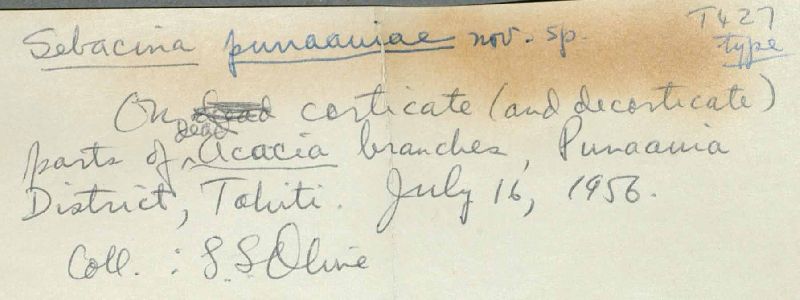 Sebacina punaauiae nov. sp. T427
type
On corticate (and decorticate)
parts of dead Acacia branches, Punaauia
District, Tahiti. July 16, 1956.
Coll. : L.S. Olive